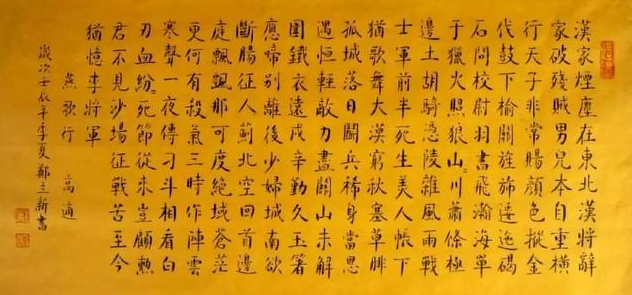 漢家煙塵在東北漢將辭
家破殘賊男兒本自重橫
行天子非常賜顏色摐金
伐鼓下榆關旌旆逶迤碣
石間校尉羽書飛瀚海單
于獵火照狼山〻川蕭條極
邊土胡騎憑陵雜風雨戰
士軍前半死生美人帳下
猶歌舞大漠窮秋塞草腓
孤城落日鬥兵稀身當恩
遇恆輕敵力盡關山未解
圍鐵衣遠戍辛勤久玉箸
應啼別離後少婦城南欲
斷腸征人薊北空回首邊
庭飄颻那可度絕域蒼茫
更何有殺氣三時作陣雲
寒聲一夜傳刁斗相看白
刃血紛〻死節從來豈顧勳
君不見沙場征戰苦至今
猶憶李將軍
燕歌行 高適
歲次壬辰年季夏鄭立新書